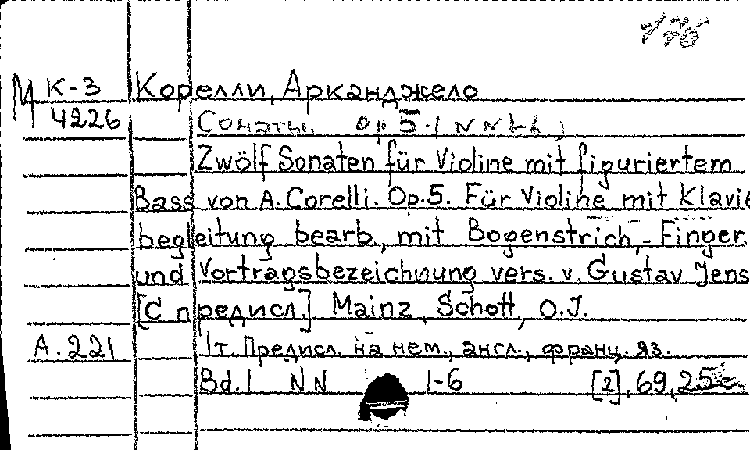 М К-3 Корелли, Арканджело
4226 Сонаты. Op 5.
Zwölf Sonaten für Violine mit figuriertem
Bass von A. Corelli. Op.5. Für Violine mit Klavie
begleitung bearb., mit Bogenstrich,- Finger
und Vortragsbezeichnung vers. v. Gustav Jens
[С предисл.] Mainz, Schott, O.J.
А.221 1т. Предисл. на нем., англ., франц. яз.
Bd.1 NN 1-6 [2], 69, 25